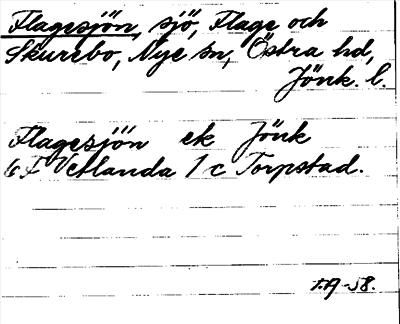 Flagesjön, sjö, Flage och
Skurebo, Nye sn, Östra hd,
Jönk. l.
Flagesjön ek Jönk
6 F Vetlanda 1 c Torpstad.